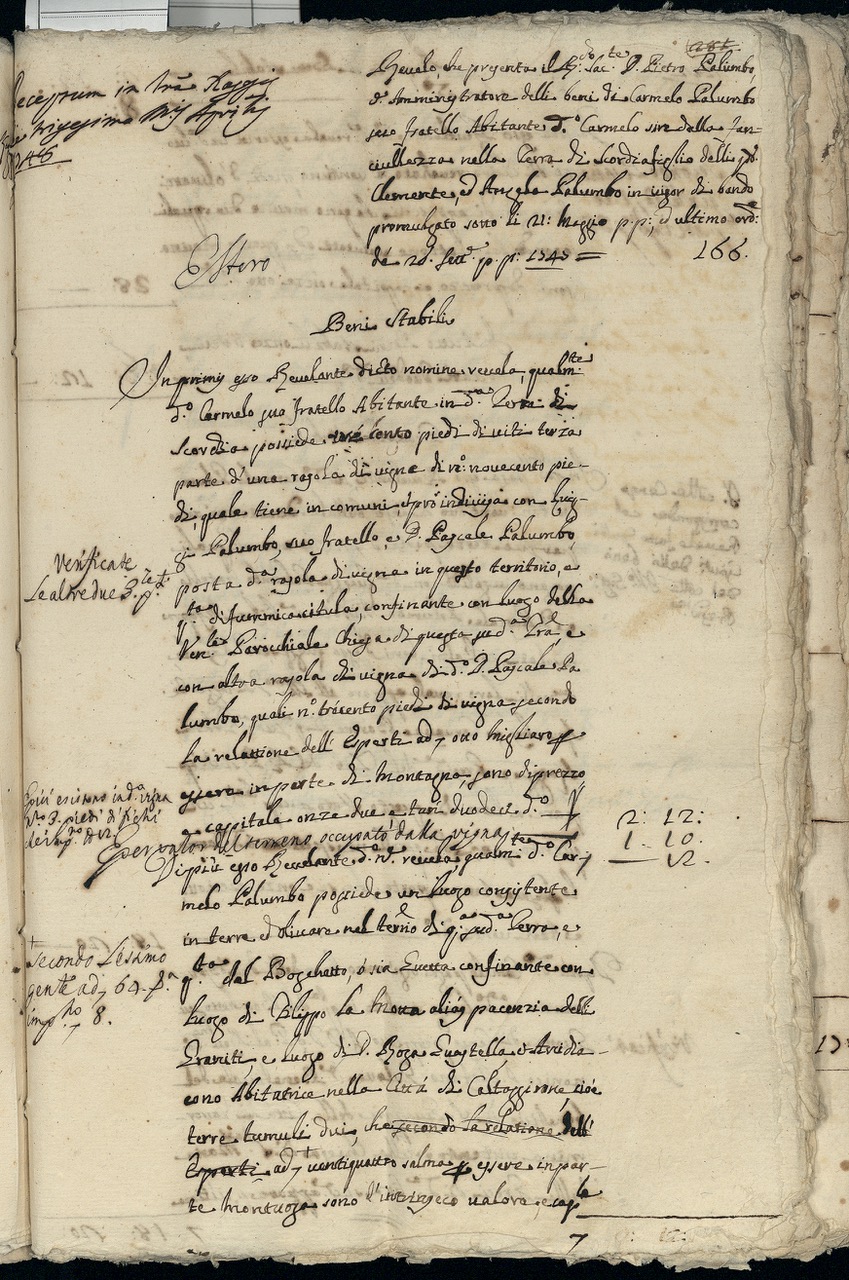 Receptum in
trigesimo
1746
Revelo, che presenta il R.do Sac.te D. Pietro Palumbo,
d'Amministratore delli beni di Carmelo Palumbo
suo fratello Abitante d.o Carmelo sin dalla fan-
ciullezza nella Terra di Scordia figlio delli qd.
Clemente, ed Angela Palumbo in vigor di bando
promulgato sotto li 21: Maggio p.p:, ed ultimo ord:
de 2 Sett.e p.p: 1747 =
166.
Estero
Beni Stabili
In primis esso Revelante dicto nomine revela, qualm.te
d.o Carmelo suo fratello Abitante in d.a Terra di
Scordia possiede cento piedi di viti terza
parte d'una rasola di vigna di n.o: novecento pie-
di quale tiene in comuni, e pro indiviso con Luig-
gi Palumbo, suo fratello, e D. Pascale Palumbo,
posta d.a rasola di vigna in questo territorio, e
q.ta di fiummicacitula, confinante con luogo della
Ven.le Parocchiale Chiesa di questa sud.a Tra, e
con altra rasola di vigna di d.o D. Pascale Pa
lumbo, quali n.o trecento piedi di vigna secondo
la relattione dell'Esperti ad otto migliaro
essere in parte di Montagna, sono di prezzo,
e capitale onze due e tarì duodeci d.o
2: 12:
E per valor del terreno occupato dalla vigna
1. 10.
Di più esso Revelante d.o n.e revela, qualm.te d.o Car-
— 12.
melo Palumbo possiede un luogo consistente
in terre ed olivara nel terrio di q.a sud.a Terra, e
q.ta del Boschetto, ò sia confinante con
luogo di Filippo la Motta alias pacenzia delli
Graniti, e luogo di D. Rosa
cono Abitatrice nella Città di Caltaggirone, cioè
terre tumuli dui, che secondo la relatione dell'
Esperti ad ventiquattro salma essere in par-
te montuosa sono l'intrinseco valore, e cap.le
7
Verificate
Le altre due 3.e
Più esistono in d.a vigna
n.o 3. piedi di fichi
secondo
ad 64.
8.